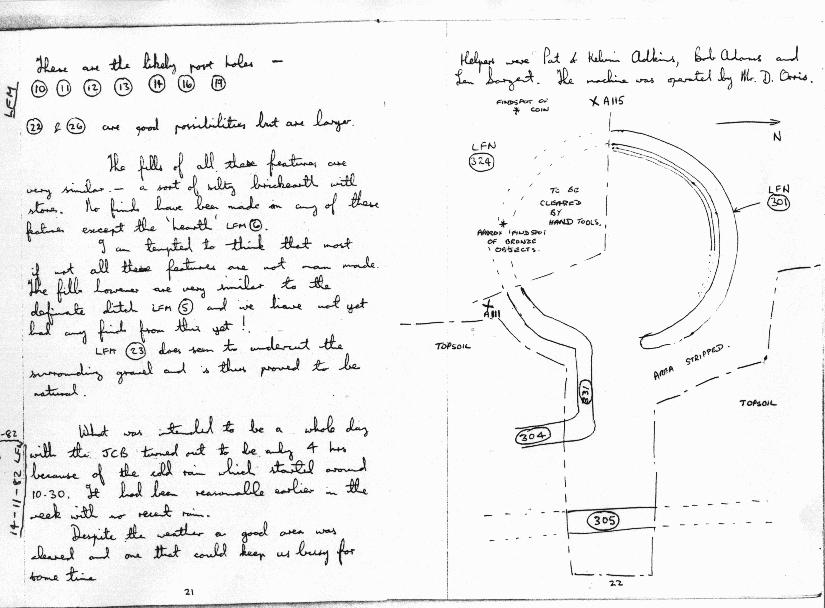 These are the likely post holes —
10 11 12 13 14 16 19
LFM
22 & 26 are good possibilities but are larger.
The fills of all these features are
very similar — a sort of silty brickearth with
stones. No finds have been made in any of these
features except the 'hearth' LFM 6.
I am tempted to think that most
if not all these features are not man made.
The fills however are very similar to the
definate ditch LFM 5 and we have not yet
had any finds from this yet!
LFM 23 does seem to undercut the
surrounding gravel and is thus proved to be
natural.
14-11-82 LFN
-82
What was intended to be a whole day
with the JCB turned out to be only 4 hrs
because of the cold rain which started around
10-30. It had been reasonable earlier in the
week with no recent rain.
Despite the weather a good area was
cleared and one that could keep us busy for
some time
21
Helpers were Pat & Kelvin Adkins, Bob Adams and
Len Sargent. The machine was operated by Mr. D. Orris.
FINDSPOT OF
* COIN
X A115
N
LFN
324
LFN
301
TO BE
CLEARED
BY
HAND TOOLS.
*
APPROX FINDSPOT
OF BRONZE
OBJECTS.
X
A111
TOPSOIL
AREA STRIPPED.
TOPSOIL
304
305
22